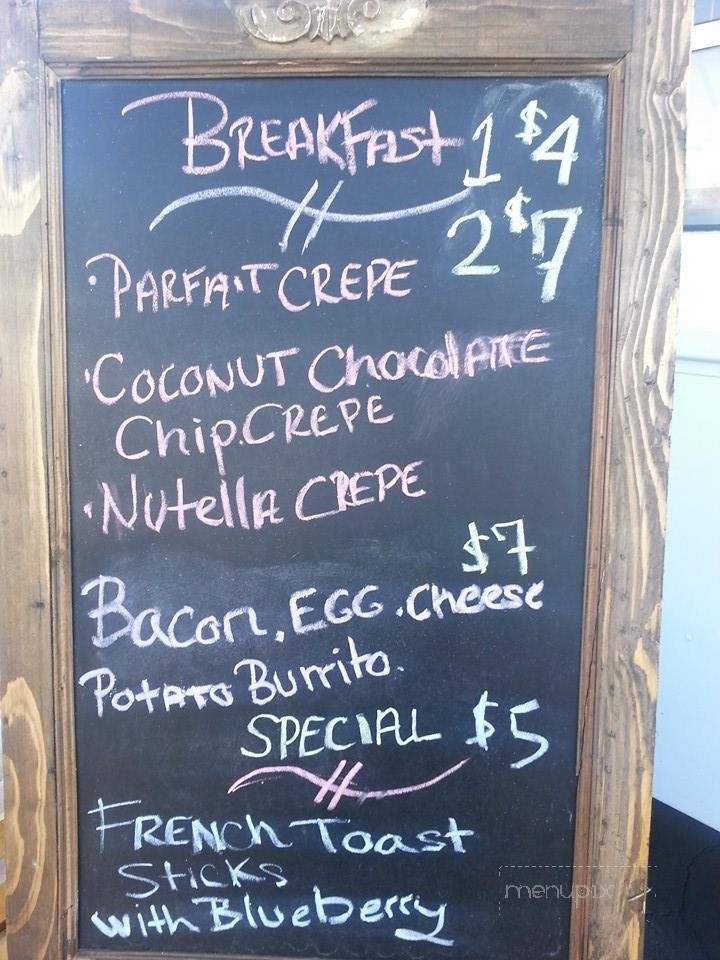 BREAKFAST 1 $4
2 $7
·PARFAIT CREPE
·COCONUT ChocolATE
Chip.CREPE
·NutellA CREPE
$7
Bacon, EGG. Cheese
PotATo Burrito.
SPECIAL $5
FRENCh Toast
SticKs
with Blueberry
menupix